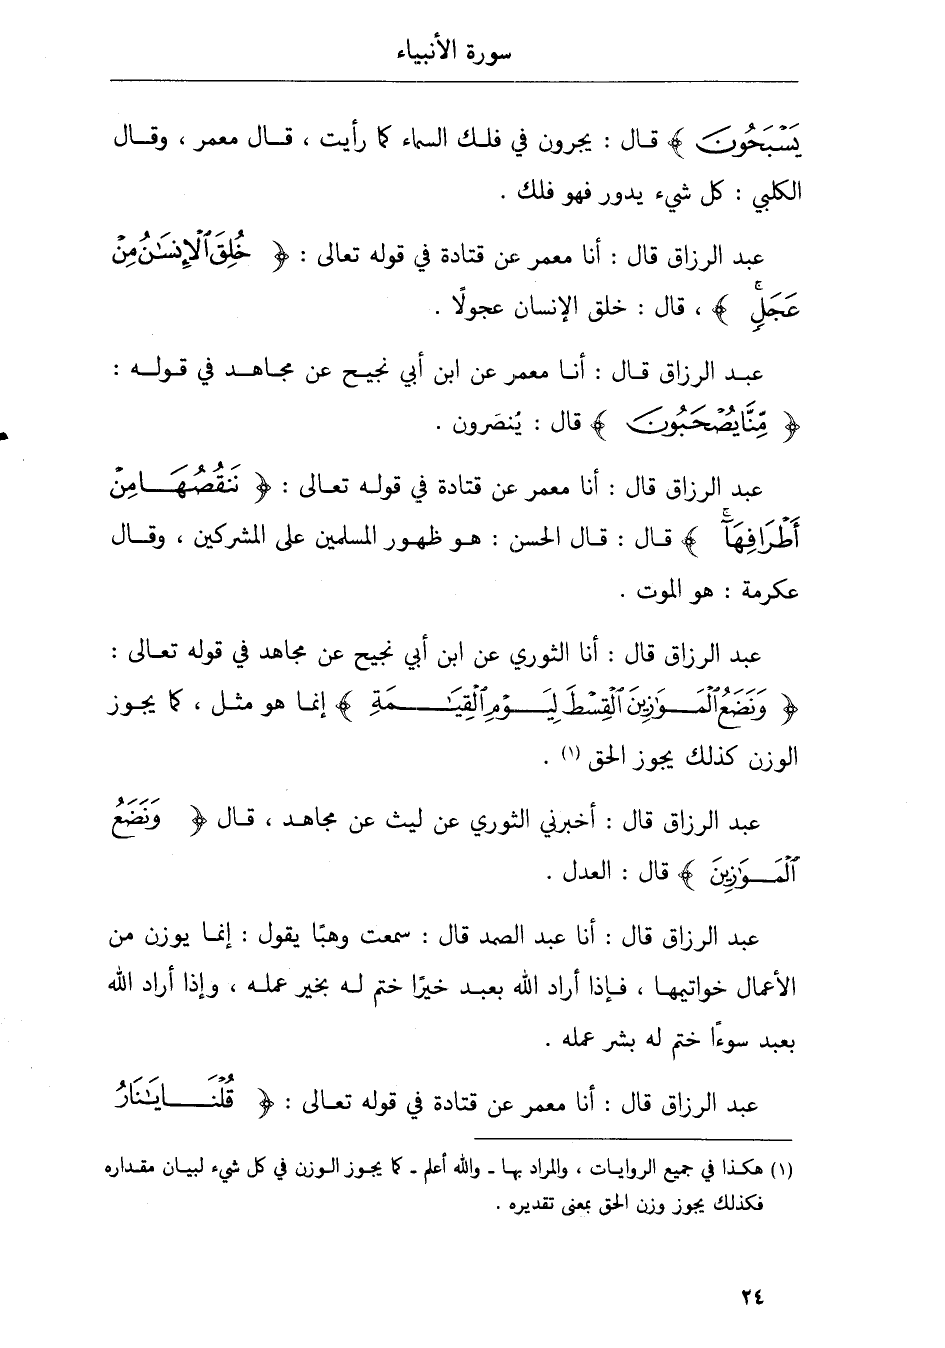 سورة الأنبياء
يَسْبَحُونَ ﴾ قـال : يجرون في فلـك السماء كما رأيت ، قـال معمر ، وقـال
الكلبي : كل شيء يدور فهو فلك .
عبد الرزاق قال : أنا معمر عن قتادة في قوله تعالى : ﴿ خُلِقَ ٱلْإِنسَٰنُ مِنْ
عَجَلٍۚ ﴾ ، قال : خلق الإنسان عجولًا .
عبـد الرزاق قـال : أنـا معمر عن ابن أبي نجيـح عن مجـاهـد في قـولـه :
﴿ مِّنَّا يُصْحَبُونَ ﴾ قال : يُنصَرون .
عبد الرزاق قال : أنا معمر عن قتادة في قولـه تعـالى : ﴿ نَنقُصُهَـا مِنْ
أَطْرَافِهَآۚ ﴾ قـال : قـال الحسن : هـو ظهـور المسلمين على المشركين ، وقـال
عكرمة : هو الموت .
عبد الرزاق قال : أنا الثوري عن ابن أبي نجيح عن مجاهد في قوله تعـالى :
﴿ وَنَضَعُ ٱلْمَـوَٰزِينَ ٱلْقِسْطَ لِيَـوْمِ ٱلْقِيَـٰـمَةِ ﴾ إنمـا هو مثـل ، كما يجـوز
الوزن كذلك يجوز الحق (١) .
عبد الرزاق قال : أخبرني الثوري عن ليث عن مجاهـد ، قـال ﴿ وَنَضَعُ
ٱلْمَـوَٰزِينَ ﴾ قال : العدل .
عبد الرزاق قال : أنا عبد الصمد قال : سمعت وهبًا يقول : إنمـا يوزن من
الأعمال خواتيمهـا ، فـإذا أراد الله بعبـد خيرًا ختم لـه بخير عملـه ، وإذا أراد الله
بعبد سوءًا ختم له بشر عمله .
عبد الرزاق قال : أنا معمر عن قتادة في قوله تعـالى : ﴿ قُلْنَـا يَٰنَارُ
(١) هكـذا في جميع الروايـات ، والمراد بهـا ـ والله أعلم ـ كما يجـوز الـوزن في كل شيء لبيـان مقـداره
فكذلك يجوز وزن الحق بمعنى تقديره .
٢٤